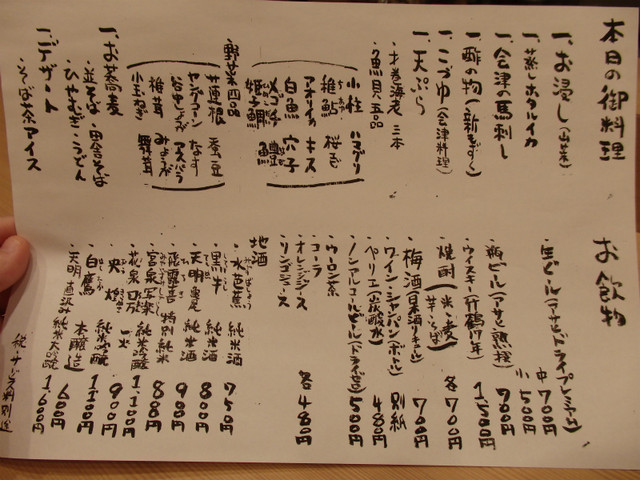 本日の御料理
一、お浸し(山菜)
一、蒸しホタルイカ
一、会津の馬刺し
一、酢の物(新もずく)
一、こづゆ(会津料理)
一、天ぷら
・才巻海老 三本
・魚貝五品
小柱 ハマグリ
稚鮎 桜
アオリイカ キス
白魚 穴子
メゴチ 鱧
・野菜四品
蓮根 蚕豆
ヤングコーン なす
アスパラ
椎茸 みょうが
小玉ねぎ 舞茸
一、お蕎麦
・並そば・田舎そば
・ひやむぎ・うどん
一、デザート
・そば茶アイス
お飲物
・生ビール(アサヒドライプレミアム) 中 700円
小 500円
・瓶ビール(アサヒ熟撰) 700円
・ウイスキー(竹鶴17年) 1,500円
・焼酎(米・麦・芋・そば) 各700円
・梅酒(日本酒リキュール) 700円
・ワイン・シャンパン(ボトル) 別紙
・ペリエ(炭酸水) 480円
・ノンアルコールビール(ドライゼロ) 500円
・ウーロン茶
・コーラ
・オレンジジュース
・リンゴジュース 各480円
地酒
・水芭蕉 純米酒 750円
・黒牛 純米酒 800円
・天明 純米酒 900円
・陸奥 特別純米 880円
・宮泉 写楽 純米吟醸 1,100円
・花泉 ロ万 一火 900円
・央 純米吟醸 1,100円
・白鷹 本醸造 600円
・天明 直汲み 純米大吟醸 1,600円
税・サービス料別途